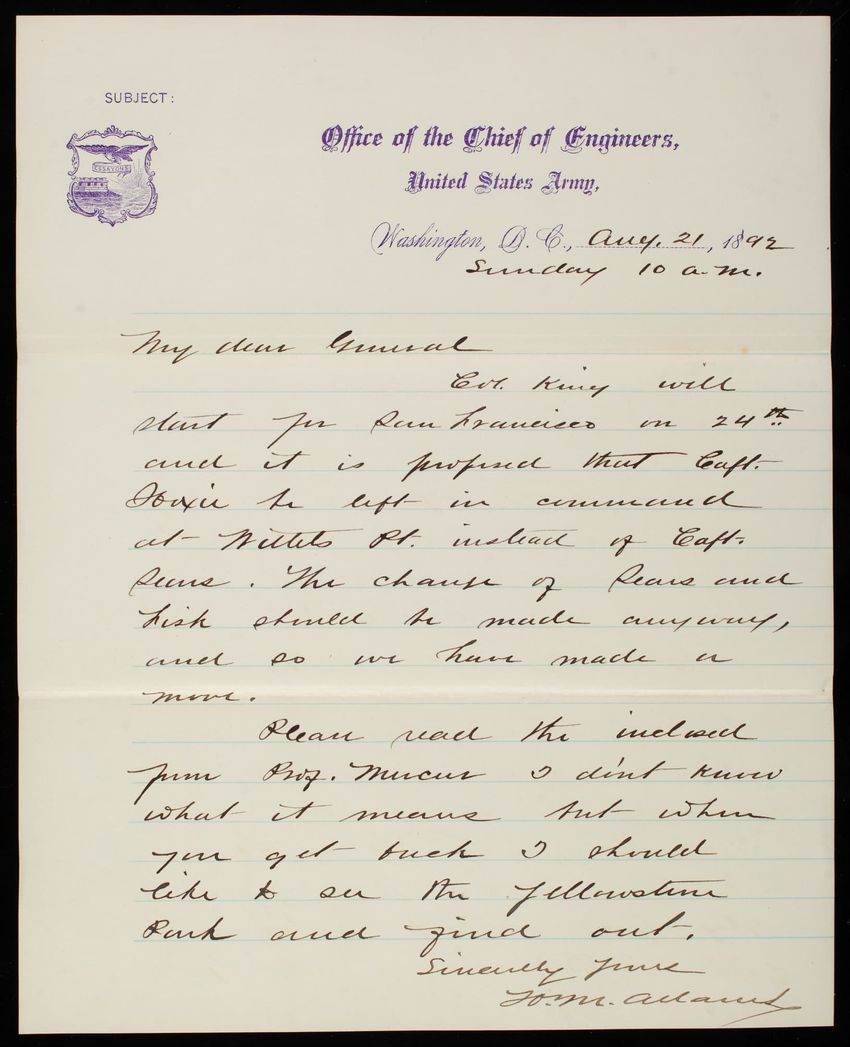 SUBJECT:
ESSAYONS
Office of the Chief of Engineers,
United States Army,
Washington, D. C., Aug. 21, 1892
Sunday 10 a.m.
My dear General
Col. King will
start for San Francisco on 24th
and it is proposed that Capt.
Hoxie be left in command
at Willets Pt. instead of Capt.
Sears. The change of Sears and
Fisk should be made anyway,
and so we have made a
move.
Please read the inclosed
from Prof. Mercur I don't know
what it means but when
you get back I should
like to see the Yellowstone
Park and find out.
Sincerely Yours
H. M. Adams